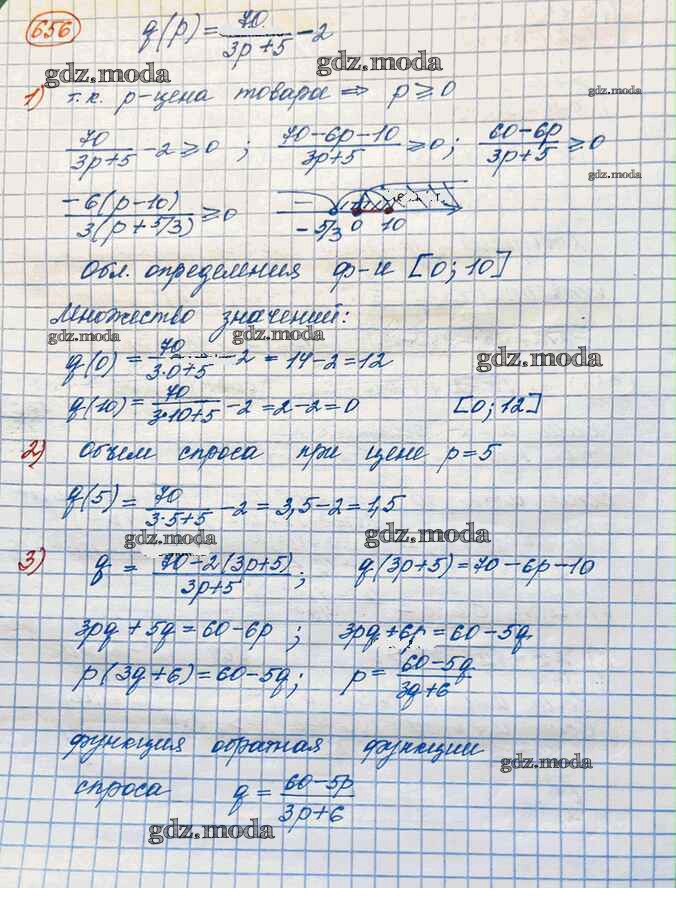 656 q(p) = 70/(3p+5) - 2
gdz.moda gdz.moda
1) т.к. p-цена товара ⇒ p ≥ 0 gdz.moda
70/(3p+5) - 2 ≥ 0 ; (70-6p-10)/(3p+5) ≥ 0 ; (60-6p)/(3p+5) ≥ 0
gdz.moda
-6(p-10)/3(p+5/3) ≥ 0 - -5/3 0 10
Обл. определения ф-и [0; 10]
Множество значений:
gdz.moda gdz.moda
q(0) = 70/(3·0+5) - 2 = 14-2 = 12 gdz.moda
q(10) = 70/(3·10+5) - 2 = 2-2 = 0 [0; 12]
2) Объем спроса при цене p = 5
q(5) = 70/(3·5+5) - 2 = 3,5-2 = 1,5
gdz.moda gdz.moda
3) q = (70-2(3p+5))/(3p+5) ; q(3p+5) = 70-6p-10
3pq + 5q = 60-6p ; 3pq + 6p = 60-5q
p(3q+6) = 60-5q ; p = (60-5q)/(3q+6)
функция обратная функции
gdz.moda
спроса q = (60-5p)/(3p+6)
gdz.moda